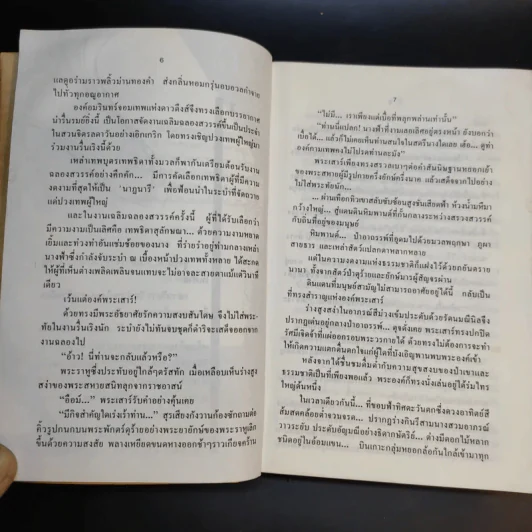 ๖
แลดูอร่ามราวพลิ้วม่านทองคำ ส่งกลิ่นหอมกรุ่นอบอวลกำจาย
ไปทั่วทุกอณูอากาศ
องค์อมรินทร์จอมเทพแห่งดาวดึงส์จึงทรงเลือกบรรยากาศ
น่ารื่นรมย์ยิ่งนี้ เป็นโอกาสจัดงานเฉลิมฉลองสวรรค์ขึ้นเป็นประจำ
ในสวนจิตรลดาวันอย่างเอิกเกริก โดยทรงเชิญปวงเทพผู้ใหญ่มา
ร่วมงานรื่นเริงนี้ด้วย
เหล่าเทพบุตรเทพธิดาทั้งมวลก็พากันเตรียมต้อนรับงาน
ฉลองสวรรค์อย่างคึกคัก... มีการคัดเลือกเทพธิดาผู้ที่มีความ
งดงามที่สุดให้เป็น 'นาฏนารี' เพื่อฟ้อนนำในระบำที่จัดถวาย
แด่ปวงเทพผู้ใหญ่
และในงานเฉลิมฉลองสวรรค์ครั้งนี้ ผู้ที่ได้รับเลือกว่า
มีความงามเป็นเลิศคือ เทพธิดาสุลักษณา... ด้วยความงามหยาด
เยิ้มและท่วงท่าอันแช่มช้อยของนาง ที่ร่ายรำอยู่ท่ามกลางเหล่า
นางฟ้าซึ่งกำลังจับระบำ ณ เบื้องหน้าปวงเทพทั้งหลาย ได้สะกด
ให้ผู้ที่เห็นต่างเพลิดเพลินจนแทบจะไม่อาจละสายตาแม้แต่วินาที
เดียว
เว้นแต่องค์พระเสาร์!
ด้วยทรงมีพระอัธยาศัยรักความสงบสันโดษ จึงไม่ใส่พระ
ทัยในงานรื่นเริงนัก ระบำยังไม่ทันจบชุดก็ดำริจะเสด็จออกจาก
งานฉลองไป
"อ้าว! นี่ท่านจะกลับแล้วหรือ?"
พระราหูซึ่งประทับอยู่ใกล้ๆตรัสทัก เมื่อเหลือบเห็นร่างสูง
สง่าของพระสหายสนิทลุกจากราชอาสน์
"อือมี้..." พระเสาร์รับคำอย่างคุ้นเคย
"มีกิจสำคัญใดเร่งเร้าท่าน..." สุรเสียงกังวานก้องซักถามต่อ
คิ้วรูปกนกบนพระพักตร์ดุร้ายอย่างพระอายักษ์ของพระราหูเลิก
ขึ้นด้วยความสงสัย พลางเหยียดขนดหางออกช้าๆราวเกียจคร้าน
๗
"ไม่มี... เราเพียงแต่เบื่อที่พลุกพล่านเท่านั้น"
"ท่านนี่แปลก! นางฟ้าที่งามเลอเลิศอยู่ตรงหน้า ยังบอกว่า
เบื่อได้... แล้วก็ไม่เคยเห็นท่านสนใจในสตรีนางใดเลย เอ้อ... ดูท่า
องค์กามเทพคงไม่โปรดท่านละมัง"
พระเสาร์เพียงทรงสรวลเบาๆต่อคำสันนิษฐานหลอกเย้า
ของพระสหายผู้มีรูปกายครึ่งยักษ์ครึ่งนาค แล้วเสด็จจากไปอย่าง
ไม่ใส่พระทัยนัก...
... ผ่านเทือกทิวเขาสลับซับซ้อนสูงชันเสียดฟ้า ห้วงน้ำมหึมา
กว้างใหญ่... สู่แดนดินหิมพานต์ที่กั้นกลางระหว่างสรวงสวรรค์
กับถิ่นที่อยู่ของมนุษย์
หิมพานต์... ป่าอาถรรพ์ที่อุดมไปด้วยมวลพฤกษา ภูผา
สายธาร และเหล่าสัตว์แปลกตามากหลาย
แต่ในความงดงามแห่งธรรมชาติก็แฝงไว้ด้วยภยันตราย
นานา ทั้งจากสัตว์ป่าดุร้ายและยักษ์มารผู้สัญจรผ่าน
ดินแดนที่มนุษย์สามัญไม่สามารถอาศัยอยู่ได้นี้ กลับเป็น
ที่ทรงสำราญแห่งองค์พระเสาร์!
ร่างสูงสง่าในอาภรณ์สีม่วงเข้มประดับด้วยรัตนมณีนิลจึง
ปรากฏเด่นอยู่กลางป่าอาถรรพ์... ดุจดั่งเคย พระเสาร์ทรงปกปิด
รัศมีเจิดจ้าที่แผ่ออกรอบพระวรกายได้ ด้วยทรงไม่ต้องการจะทำ
ให้เกิดความแตกตื่นตกใจแก่ผู้ใดที่บังเอิญพานพบพระองค์เข้า
หลังจากได้ชื่นชมดื่มด่ำกับความสุขสงบของป่าเขาและ
ธรรมชาติเป็นที่เพียงพอแล้ว พระองค์ก็ทรงนั่งเล่นอยู่ใต้ร่มไทร
ใหญ่ต้นหนึ่ง
ในเวลาเดียวกันนี้... ที่ขอบฟ้าทิศตะวันตกซึ่งดวงอาทิตย์สี
ส้มสดคล้อยต่ำจวนจรด... ปรากฏร่างกินรีสามนางสวมอาภรณ์
วาวระยับ ประดับอัญมณีอย่างธิดากษัตริย์... ต่างมีดอกไม้หลาก
ชนิดอยู่ในอ้อมแขน... บินเกาะกลุ่มหยอกล้อกันใกล้เข้ามาทุก